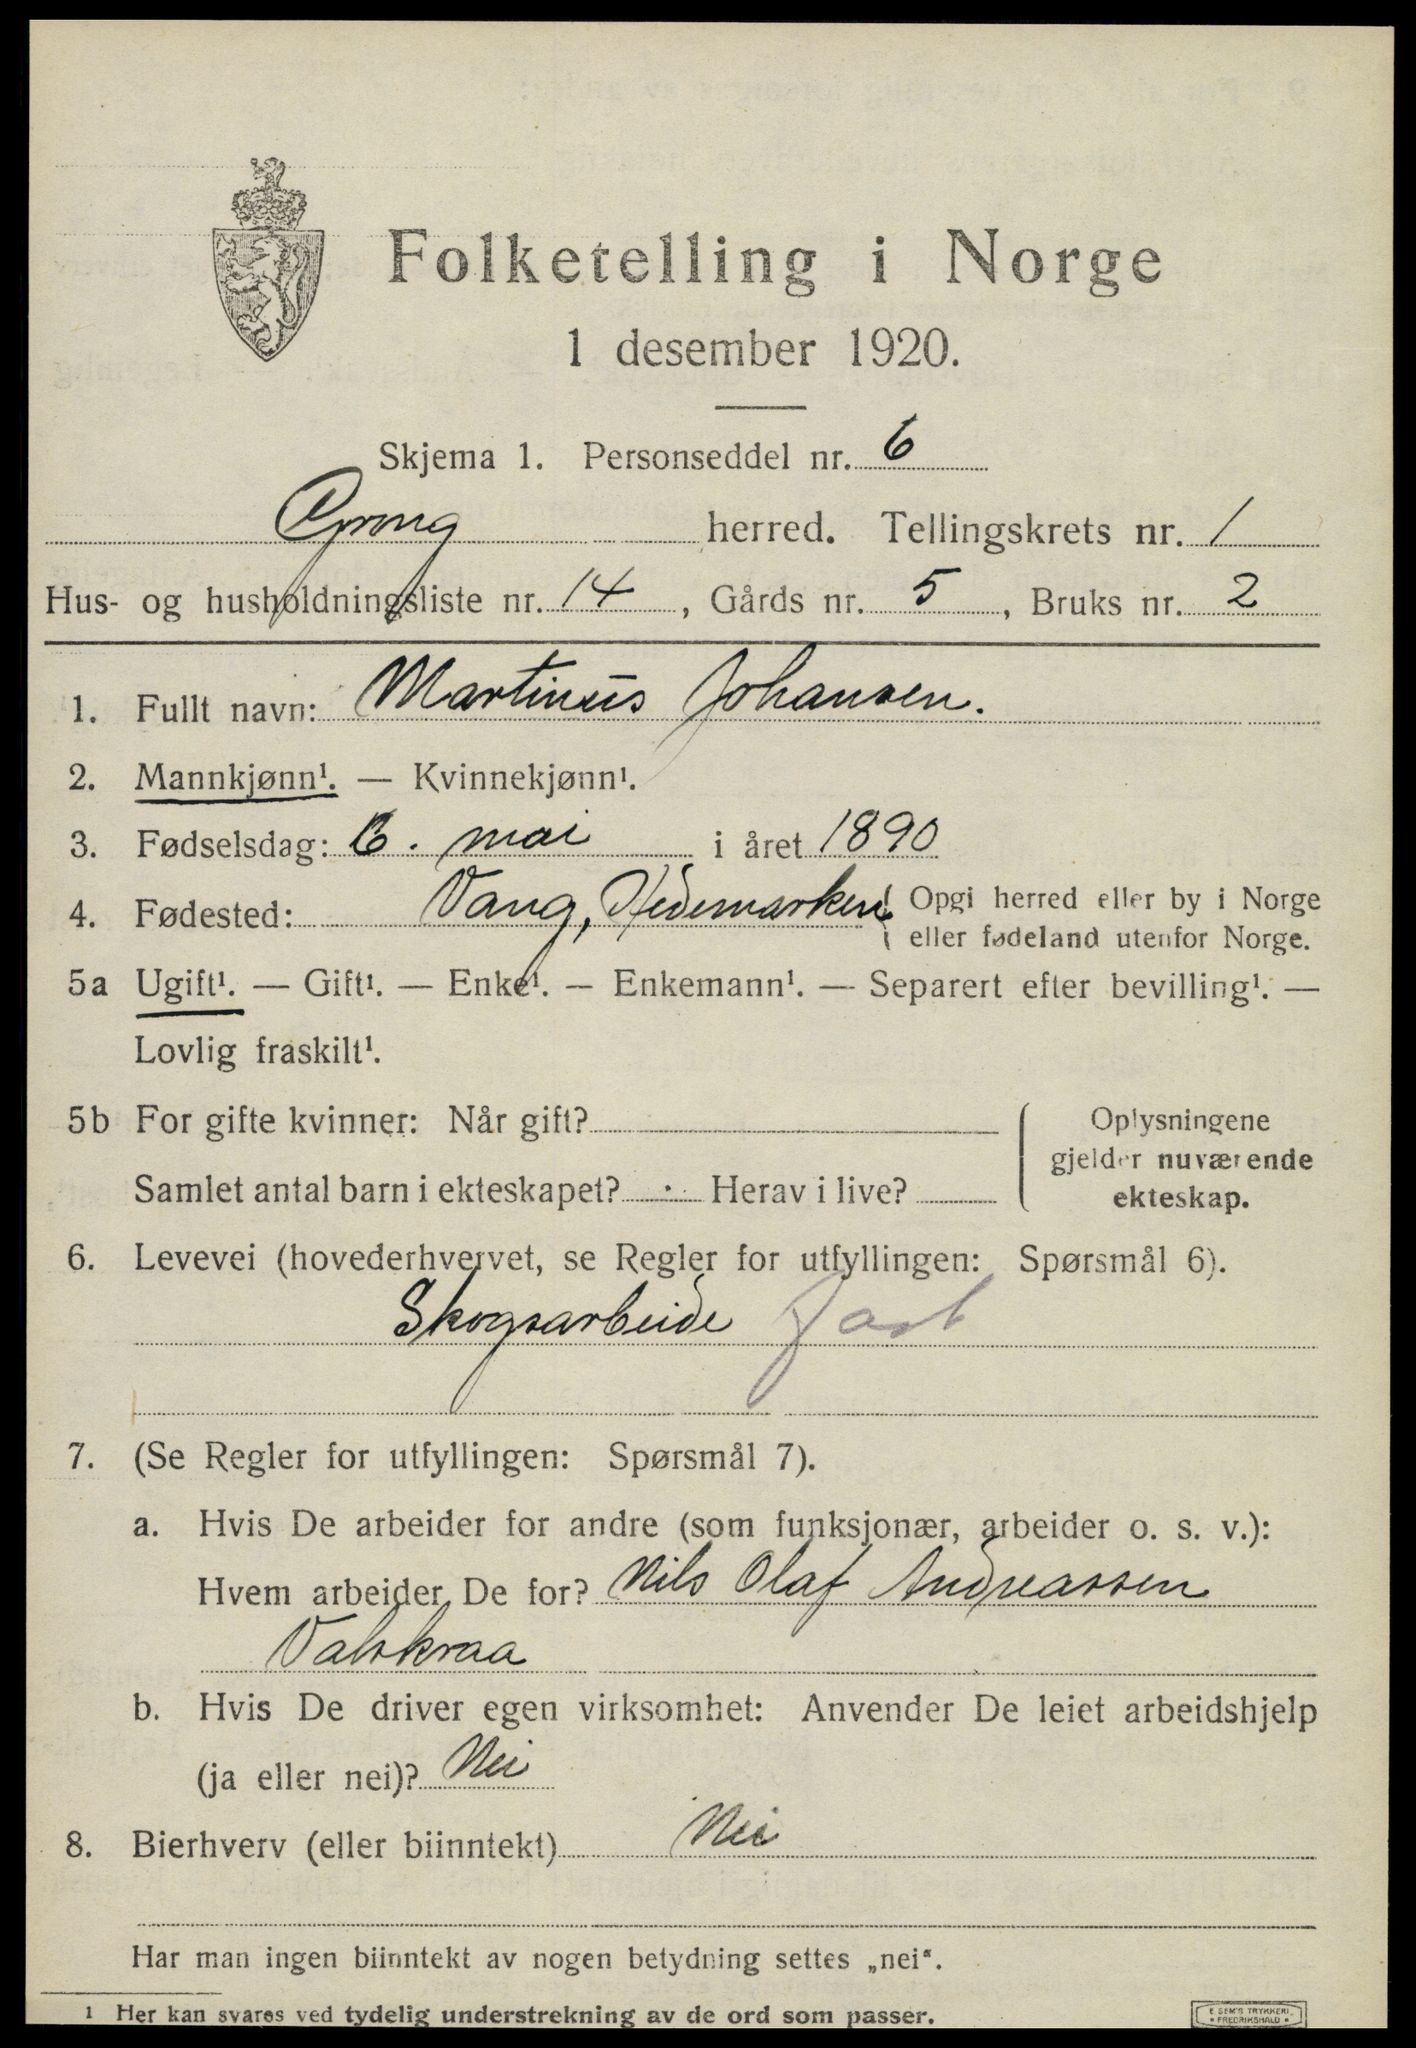 Folketelling i Norge
1 desember 1920.
Skjema 1. Personseddel nr. 6
Grong herred. Tellingskrets nr. 1
Hus- og husholdningsliste nr. 14, Gårds nr. 5, Bruks nr. 2
1. Fullt navn: Martinus Johansen.
2. Mannkjønn¹. — Kvinnekjønn¹.
3. Fødselsdag: 6. mai i året 1890
4. Fødested: Vang, Hedemarken { Opgi herred eller by i Norge
eller fødeland utenfor Norge.
5a Ugift¹. — Gift¹. — Enke¹. — Enkemann¹. — Separert efter bevilling¹. —
Lovlig fraskilt¹.
5b For gifte kvinner: Når gift? { Oplysningene
gjelder nuværende
Samlet antal barn i ekteskapet? Herav i live?
ekteskap.
6. Levevei (hovederhvervet, se Regler for utfyllingen: Spørsmål 6).
Skogsarbeide
7. (Se Regler for utfyllingen: Spørsmål 7).
a. Hvis De arbeider for andre (som funksjonær, arbeider o. s. v.):
Hvem arbeider De for? Nils Olaf Andreassen
Valskraa
b. Hvis De driver egen virksomhet: Anvender De leiet arbeidshjelp
(ja eller nei)? Nei
8. Bierhverv (eller biinntekt) Nei
Har man ingen biinntekt av nogen betydning settes „nei“.
1 Her kan svares ved tydelig understrekning av de ord som passer.
E. SEM'S TRYKKERI
* FREDRIKSHALD *